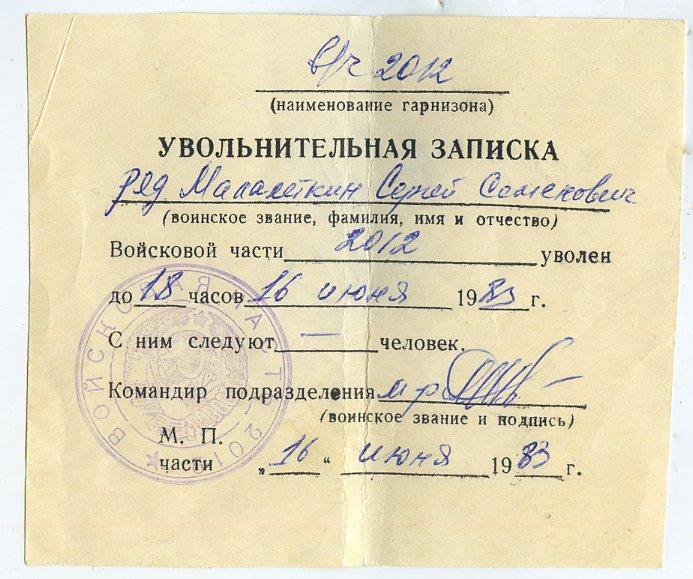 в/ч 2012
(наименование гарнизона)
УВОЛЬНИТЕЛЬНАЯ ЗАПИСКА
ряд Малалеткин Сергей Семенович
(воинское звание, фамилия, имя и отчество)
Войсковой части 2012 уволен
до 18 часов 16 июня 1983 г.
С ним следуют — человек.
Командир подразделения м-р
(воинское звание и подпись)
М. П.
части „16“ июня 1983 г.
ВОЙСКОВАЯ ЧАСТЬ 2012